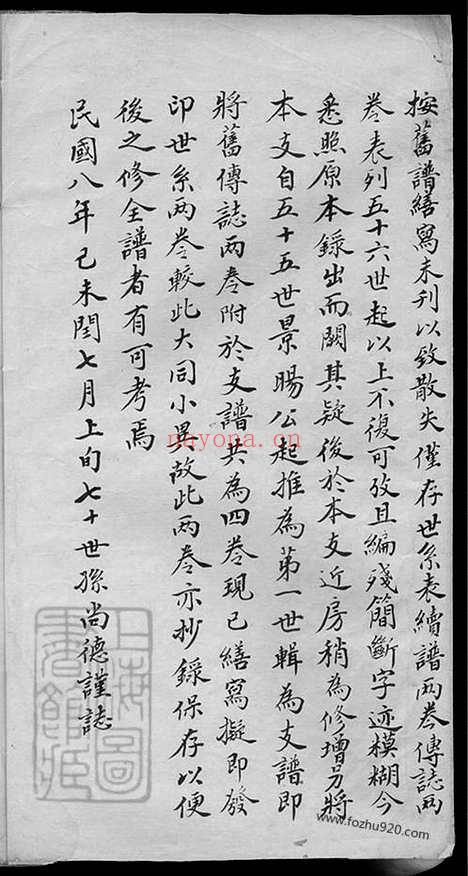 按舊譜繕寫未刊以致散失僅存世系表續譜兩卷傳誌兩
卷表列五十六世起以上不復可攷且編殘簡斷字迹模糊今
悉照原本錄出而闕其疑後於本支近房稍為修增另將
本支自五十五世景暘公起推為第一世輯為支譜即
將舊傳誌兩卷附於支譜共為四卷現已繕寫擬即發
印世系兩卷較此大同小異故此兩卷亦抄錄保存以便
後之修全譜者有可考焉
民國八年己未閏七月上旬七十世孫尚德謹誌
上海圖書館藏
nayona.cn
www.fozhu920.com